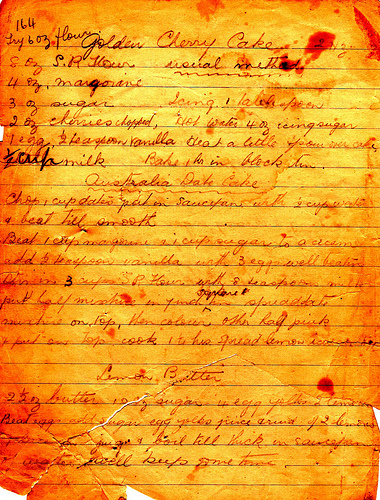 164
Try 6 oz flour
Golden Cherry Cake
8 oz S.R Flour usual method
4 oz, margarine
3 oz sugar Icing. 1 tablespoon
2 oz cherries chopped, Hot water 4 oz icing sugar
1 egg ½ teaspoon vanilla Beat a little spoon over cake
½ cup milk Bake 1 h in block tin
Australia Date Cake
Chop 1 cup dates put in saucepan with ½ cup water
& beat till smooth
Beat 1 cup margarine & 1 cup sugar to a cream
add ½ teaspoon vanilla with 3 eggs well beaten
3 cups S.R Flour with 8 teaspoons milk
put half mixture in square spread date
mixture on top, then colour other half pink
& put on top cook 1½ hrs spread lemon
Lemon Butter
2½ oz butter, 10 oz sugar 4 egg yolks 2 lemons
Beat egg sugar egg yolks juice rind of 2 lemons
& boil till thick in saucepan
well keep some time